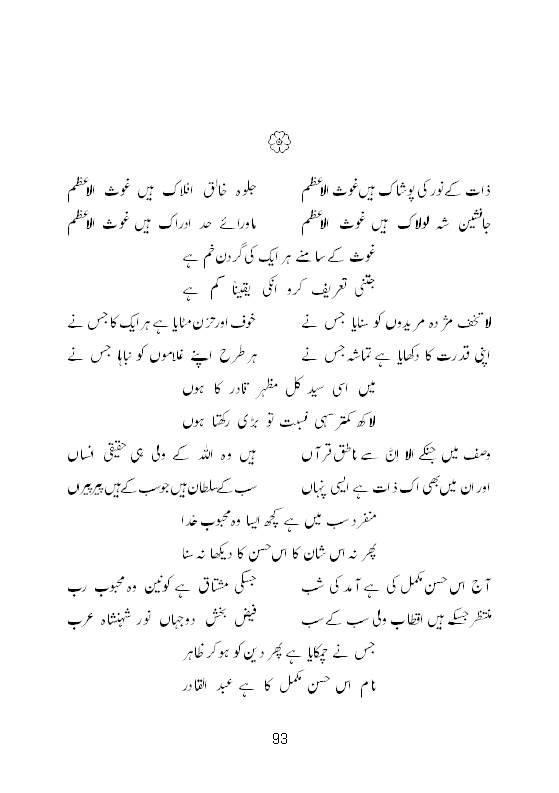 ذات کے نور کی پوشاک ہیں غوث الاعظم جلوہ خالق افلاک ہیں غوث الاعظم
جانشین شہ لولاک ہیں غوث الاعظم ماورائے حد ادراک ہیں غوث الاعظم
غوث کے سامنے ہر ایک کی گردن خم ہے
جتنی تعریف کرو انکی یقیناً کم ہے
لا تخف مژدہ مریدوں کو سنایا جس نے خوف اور حزن مٹایا ہے ہر ایک کا جس نے
اپنی قدرت کا دکھایا ہے تماشہ جس نے ہر طرح اپنے غلاموں کو نباہا جس نے
میں اسی سید کل مظہر قادر کا ہوں
لاکھ کمتر سہی نسبت تو بڑی رکھتا ہوں
وصف میں جنکے الا انَّ سے ناطق قرآں ہیں وہ اللہ کے ولی ہی حقیقی انساں
اور ان میں بھی اک ذات ہے ایسی پنہاں سب کے سلطان ہیں جو سب کے ہیں پیر پیراں
منفرد سب میں ہے کچھ ایسا وہ محبوب خدا
پھر نہ اس شان کا اس حسن کا دیکھا نہ سنا
آج اس حسن مکمل کی ہے آمد کی شب جسکی مشتاق ہے کونین وہ محبوب رب
منتظر جسکے ہیں اقطاب ولی سب کے سب فیض بخش دوجہاں نور شہنشاہ عرب
جس نے چمکایا ہے پھر دین کو ہو کر ظاہر
نام اس حسن مکمل کا ہے عبد القادر
93